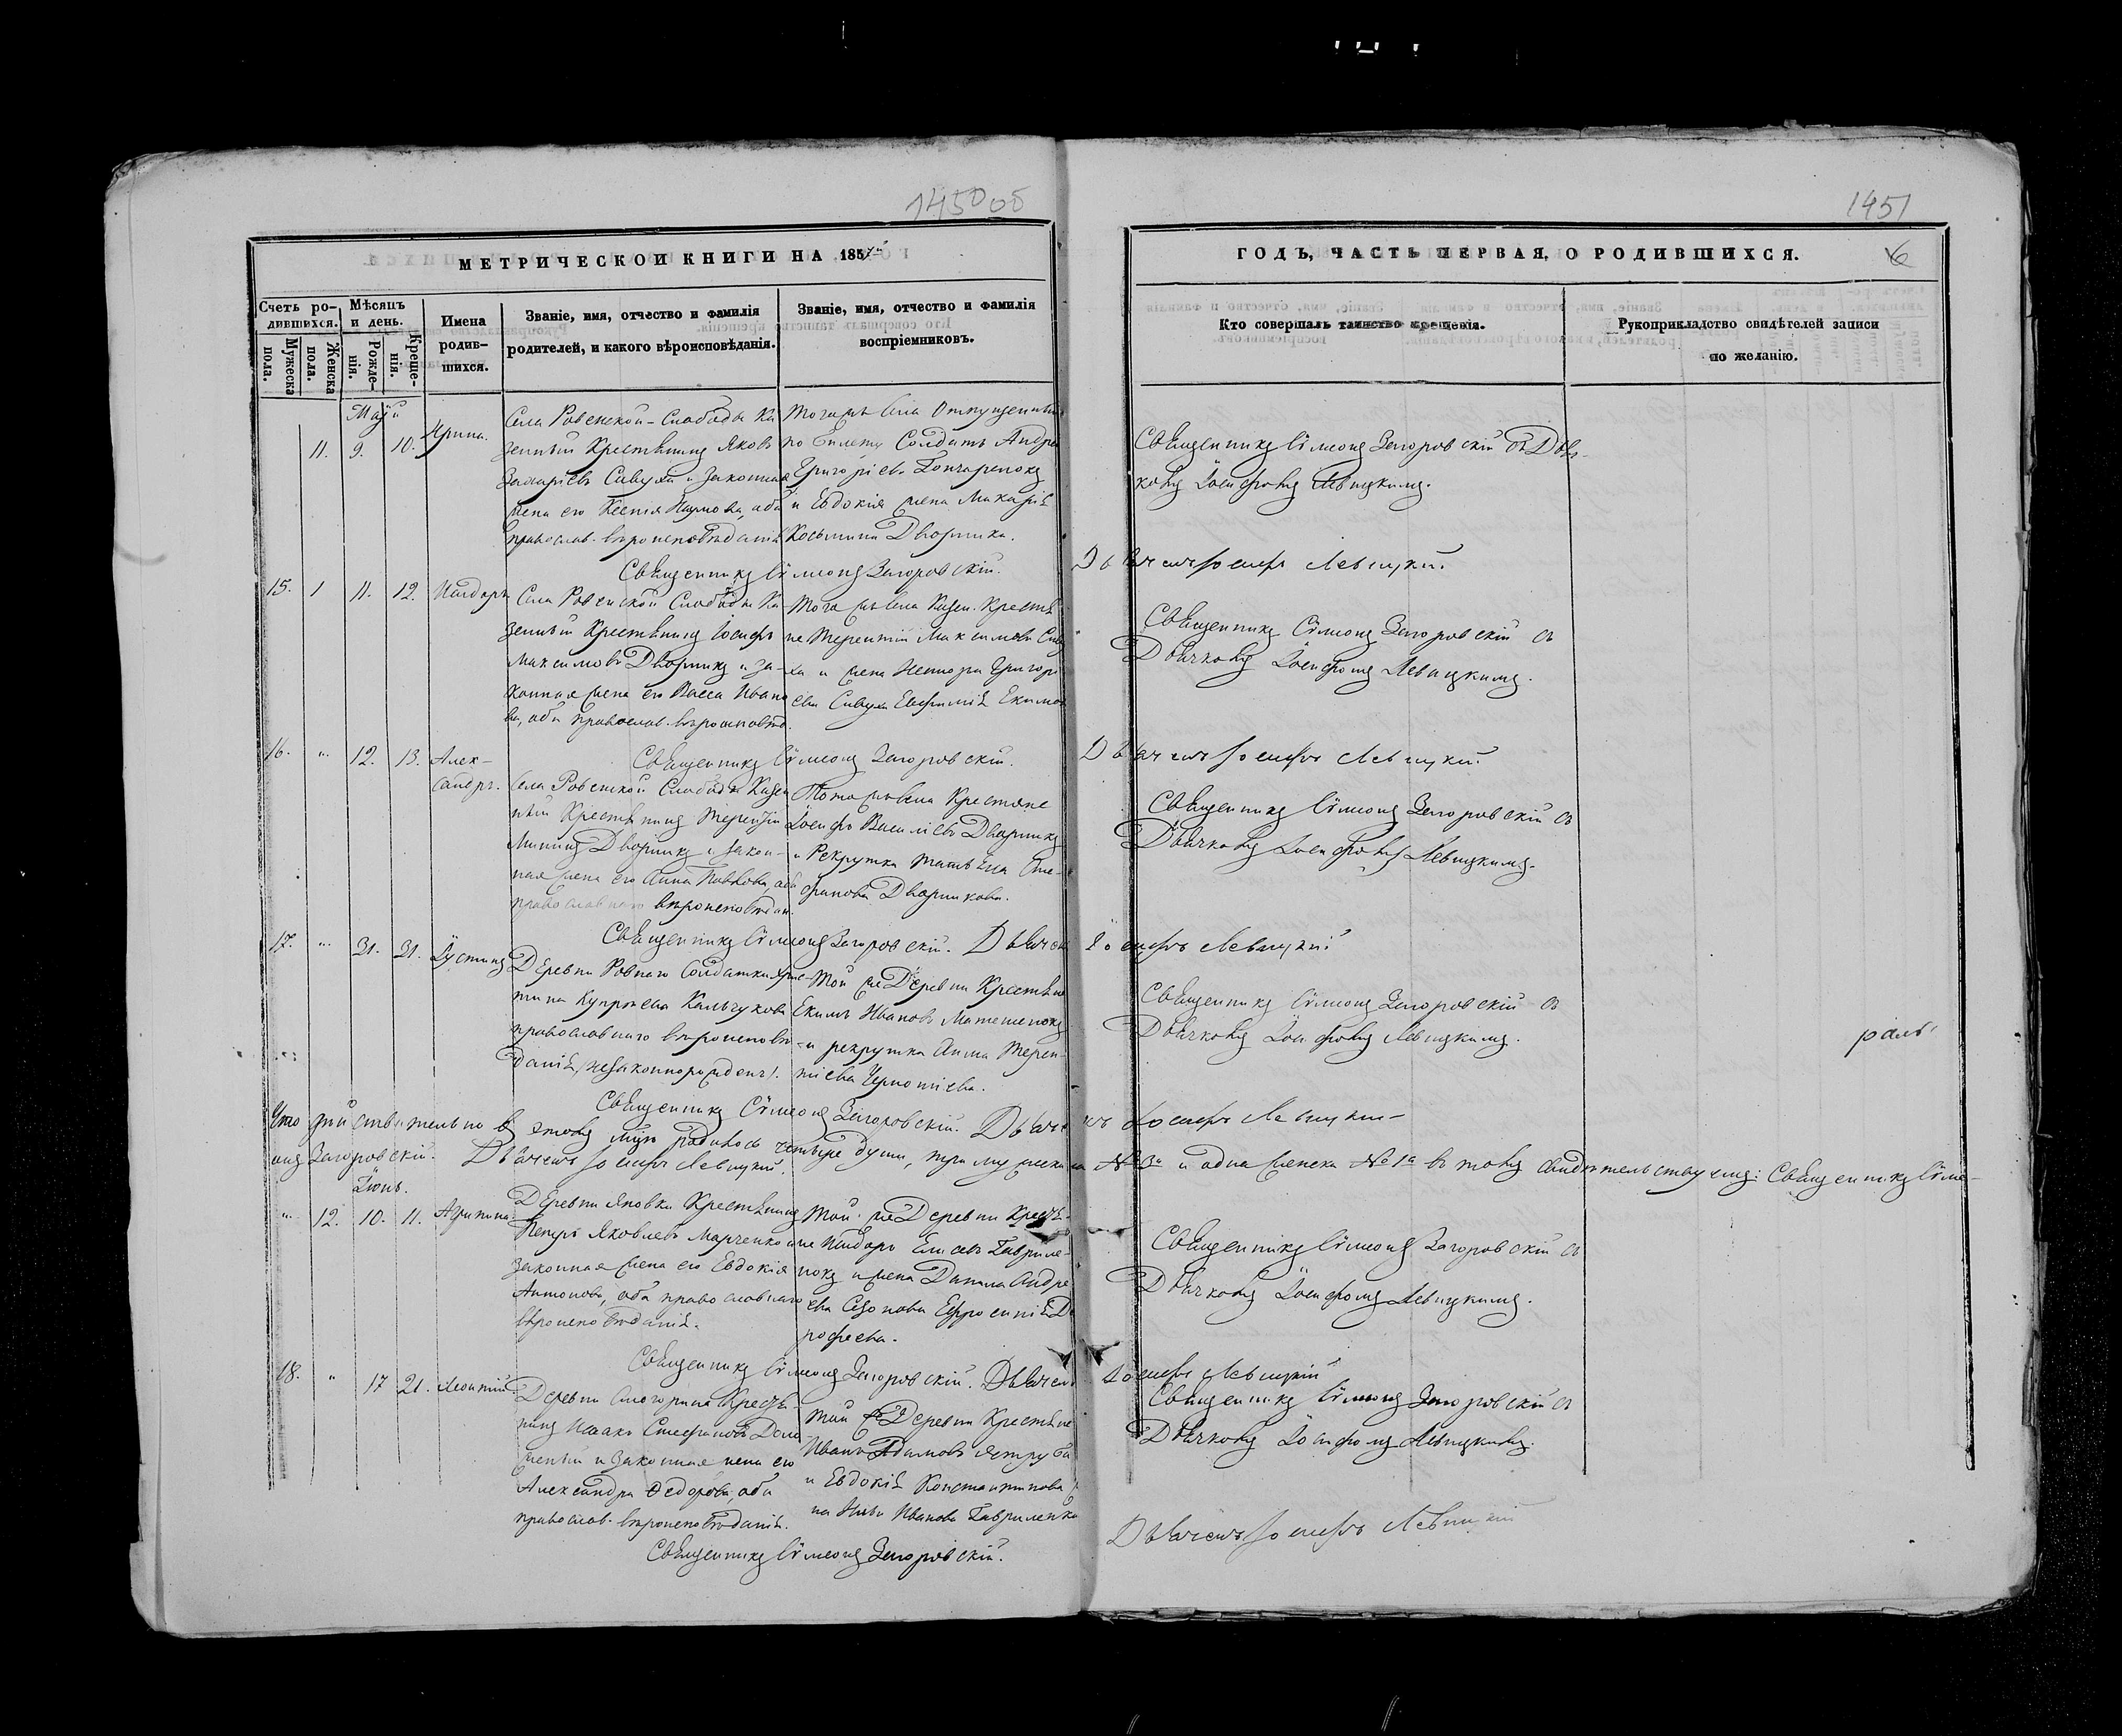 145005
1451
МЕТРИЧЕСКОЙ КНИГИ НА 1857й
ГОДЪ, ЧАСТЬ ПЕРВАЯ, О РОДИВШИХСЯ.
6
Счетъ ро-
дившихся.
Мѣсяцъ
и день.
Мужеска
пола.
Женска
пола.
Рожде-
нія.
Креще-
нія.
Имена
родив-
шихся.
Званіе, имя, отчество и фамилія
родителей, и какого вѣроисповѣданія.
Званіе, имя, отчество и фамилія
воспріемниковъ.
Кто совершалъ таинство крещенія.
Рукоприкладство свидѣтелей записи
по желанію.
Май
11. 9. 10. Ирина.
Села Ровенской-Слободы Ка
зенный Крестьянинъ Яковъ
Захаріевъ Сивуха и законная
жена его Ксенія Наумова, оба
православ. вѣроисповѣданія
Тогожъ села Отпущенный
по билету Солдатъ Андрей
Григоріевъ Гончаренокъ
и Евдокія жена Макарія
Косьмина Дворника.
Священникъ Сѵмеонъ Загоровскій съ Дья-
комъ Іосифомъ Левицкимъ.
Священникъ Сѵмеонъ Загоровскій.
Дьячекъ Іосифъ Левицкій.
15. 1 11. 12. Исидоръ
Села Ровенской Слободы Ка-
зенный Крестьянинъ Іосифъ
Максимовъ Дворникъ и за-
конная жена его Васса Ивано
ва, оба православ. вѣроисповѣд.
Тогожъ села Казен. Крестья
не Терентій Максимовъ Сиву
ха и жена Нестора Григорі
ева Сивухи Евфимія Екимов
Священникъ Сѵмеонъ Загоровскій съ
Дьячкомъ Іосифомъ Левицкимъ.
Священникъ Сѵмеонъ Загоровскій.
Дьячекъ Іосифъ Левицкій.
16. " 12. 13. Алек-
сандръ.
Села Ровенской Слободы Казен
ный Крестьянинъ Терентій
Мининъ Дворникъ и закон-
ная жена его Анна Павлова, оба
православнаго вѣроисповѣдан.
Тогожъ села Крестяне
Іосифъ Василіевъ Дворникъ
и Рекрутка Татьяна Сте-
фанова Дворникова.
Священникъ Сѵмеонъ Загоровскій съ
Дьячкомъ Іосифомъ Левицкимъ.
Священникъ Сѵмеонъ Загоровскій. Дьячекъ Іосифъ Левицкій.
17. " 31. 31. Іустинъ
Деревни Ровнаго Солдатка Хрис-
тина Купріева Кальчукова
православнаго вѣроисповѣ-
данія, /незаконнорожденъ/.
Той же Деревни Крестьяне
Екимъ Ивановъ Матешенокъ
и рекрутка Анна Терен-
тіева
Священникъ Сѵмеонъ Загоровскій съ
Дьячкомъ Іосифомъ Левицкимъ.
Священникъ Сѵмеонъ Загоровскій. Дьячекъ Іосифъ Левицкій
Что дѣйствительно въ этомъ мцѣ родилось четыре души, три мужеска № 3й и одна женска № 1а въ томъ свидѣтельствуемъ: Священникъ Сѵме-
онъ Загоровскій. Дьячекъ Іосифъ Левицкій.
Іюнь.
" 12. 10. 11.
Деревни Яновки Крестьянинъ
Петръ Яковлевъ Марченко и
законная жена его Евдокія
Антонова, оба православнаго
вѣроисповѣданія.
Той же Деревни Кресть-
не Исидоръ Елисѣевъ Гаврилe-
нокъ и жена Данила Андре
ева Сазонова Ефросинія До
рофеева.
Священникъ Сѵмеонъ Загоровскій съ
Дьячкомъ Іосифомъ Левицкимъ.
Священникъ Сѵмеонъ Загоровскій. Дьячекъ Іосифъ Левицкій
18. " 17 21. Леонтій
Деревни Кресть-
нинъ Исаакъ Стефановъ
и законная жена его
Александра Федорова, оба
православ. вѣроисповѣданія.
Той же Деревни Крестьяне
Иванъ Адамовъ Ятру
и Евдокія Константинова
Иванова Гавриленка
Священникъ Сѵмеонъ Загоровскій съ
Дьячкомъ Іосифомъ Левицкимъ.
Священникъ Сѵмеонъ Загоровскій.
Дьячекъ Іосифъ Левицкій